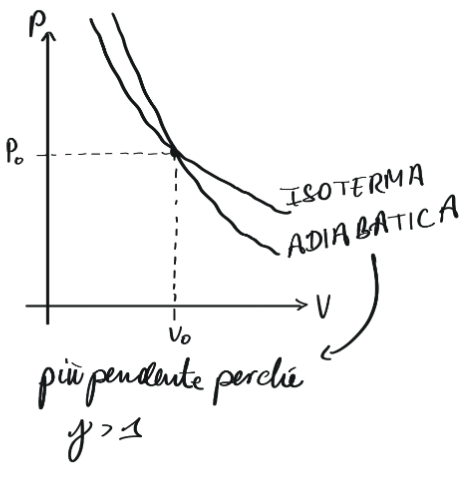 P
P₀
ISOTERMA
ADIABATICA
V
V₀
più pendente perché
γ > 1